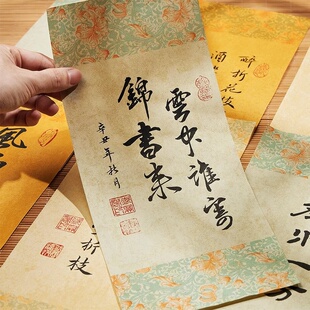 醉折花枝
酒
雲中誰寄
錦書来
辛丑年秋月
風
折枝